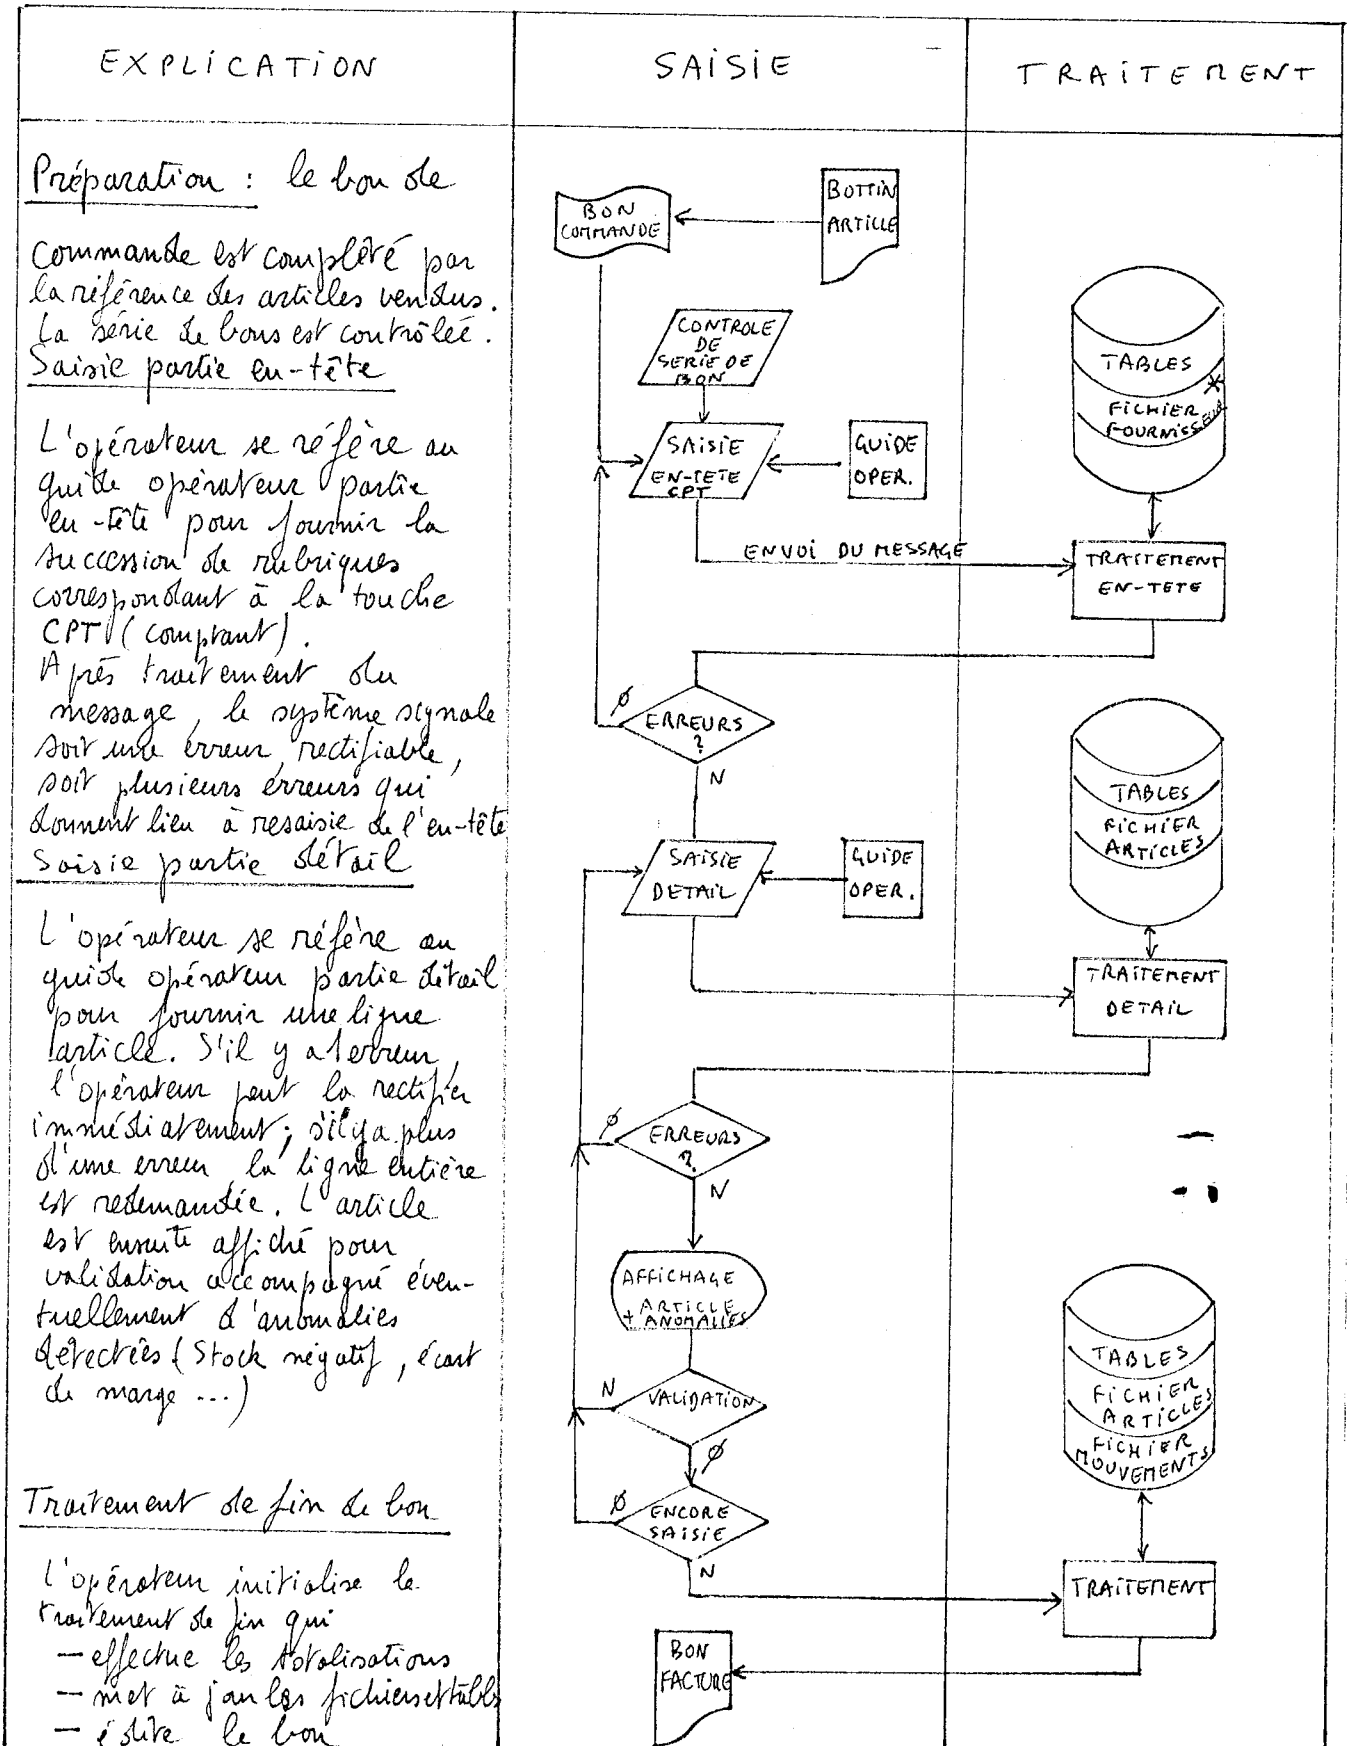 EXPLICATION
SAISIE
TRAITEMENT
Préparation : le bon de
commande est complêté par
la référence des articles vendus.
La série de bons est contrôlée.
Saisie partie en-tête
L'opérateur se réfère au
guide opérateur partie
en-tête pour fournir la
succession de rubriques
correspondant à la touche
CPT (comptant).
Après traitement du
message, le système signale
soit une erreur rectifiable,
soit plusieurs erreurs qui
donnent lieu à resaisie de l'en-tête
Saisie partie détail
L'opérateur se réfère au
guide opérateur partie détail
pour fournir une ligne
article. S'il y a 1 erreur,
l'opérateur peut la rectifier
immédiatement; s'il y a plus
d'une erreur, la ligne entière
est redemandée. L'article
est ensuite affiché pour
validation accompagné éven-
tuellement d'anomalies
détectées (Stock négatif, écart
de marge ...)
Traitement de fin de bon
L'opérateur initialise le
traitement de fin qui
- effectue les totalisations
- met à jour les fichiers et tables
- édite le bon
BON
COMMANDE
BOTTIN
ARTICLE
CONTROLE
DE
SERIE DE
BON
SAISIE
EN-TETE
CPT
GUIDE
OPER.
ENVOI DU MESSAGE
TABLES
*
FICHIER
FOURNISSEUR
TRAITEMENT
EN-TETE
Ø
ERREURS
?
N
SAISIE
DETAIL
GUIDE
OPER.
TABLES
FICHIER
ARTICLES
TRAITEMENT
DETAIL
Ø
ERREURS
?
N
AFFICHAGE
ARTICLE
+ ANOMALIES
N
VALIDATION
Ø
Ø
ENCORE
SAISIE
N
TABLES
FICHIER
ARTICLES
FICHIER
MOUVEMENTS
TRAITEMENT
BON
FACTURE